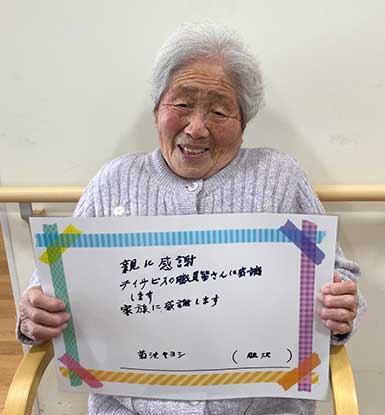 親に感謝
デイサービスの職員皆さんに感謝
します
家族に感謝します
菊池キヨシ (胆沢)